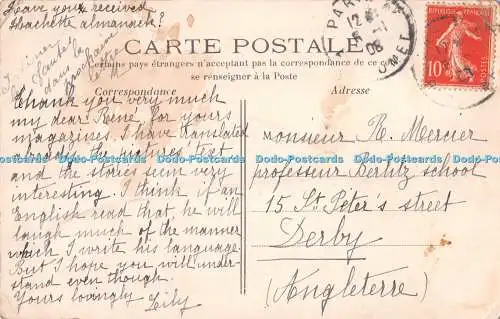 Have you received
Hachette almanack?
CARTE POSTALE
Certains pays étrangers n'acceptant pas la correspondance de ce
se renseigner à la Poste
Correspondance
Adresse
RÉPUBLIQUE FRANÇAISE
POSTES
10
PAR
12
08
dans la
prochaine
lettre
Thank you very much
my dear René for yours
magazines. I have translated
already the pictures' text
and the stories seem very
interesting. I think if an
English read that he will
laugh much of the manner
which I write his language.
But I hope you will under-
stand even though.
Yours lovingly Lily
Monsieur R. Mercier
professeur Berlitz school
15 St. Peter's street
Derby
(Angleterre)
Dodo-Postcards Dodo-Postcards Dodo-Postcards Dodo-Postcards Dodo-Postcards